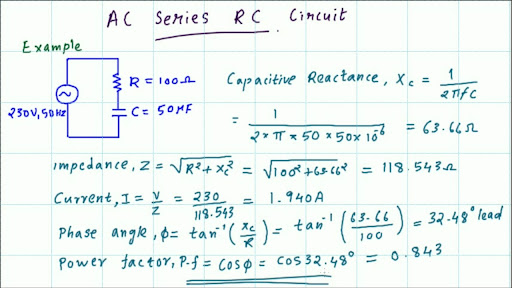 AC Series RC Circuit
Example
R = 100Ω
230V, 50Hz
C = 50μF
Capacitive Reactance, Xc = 1/2πfC
= 1/2*π*50*50x10⁻⁶ = 63.66Ω
Impedance, Z = √R²+Xc² = √100²+63.66² = 118.543Ω
Current, I = V/Z = 230/118.543 = 1.940A
Phase angle, ϕ = tan⁻¹(Xc/R) = tan⁻¹(63.66/100) = 32.48° lead
Power factor, P.f = cosϕ = cos32.48° = 0.843